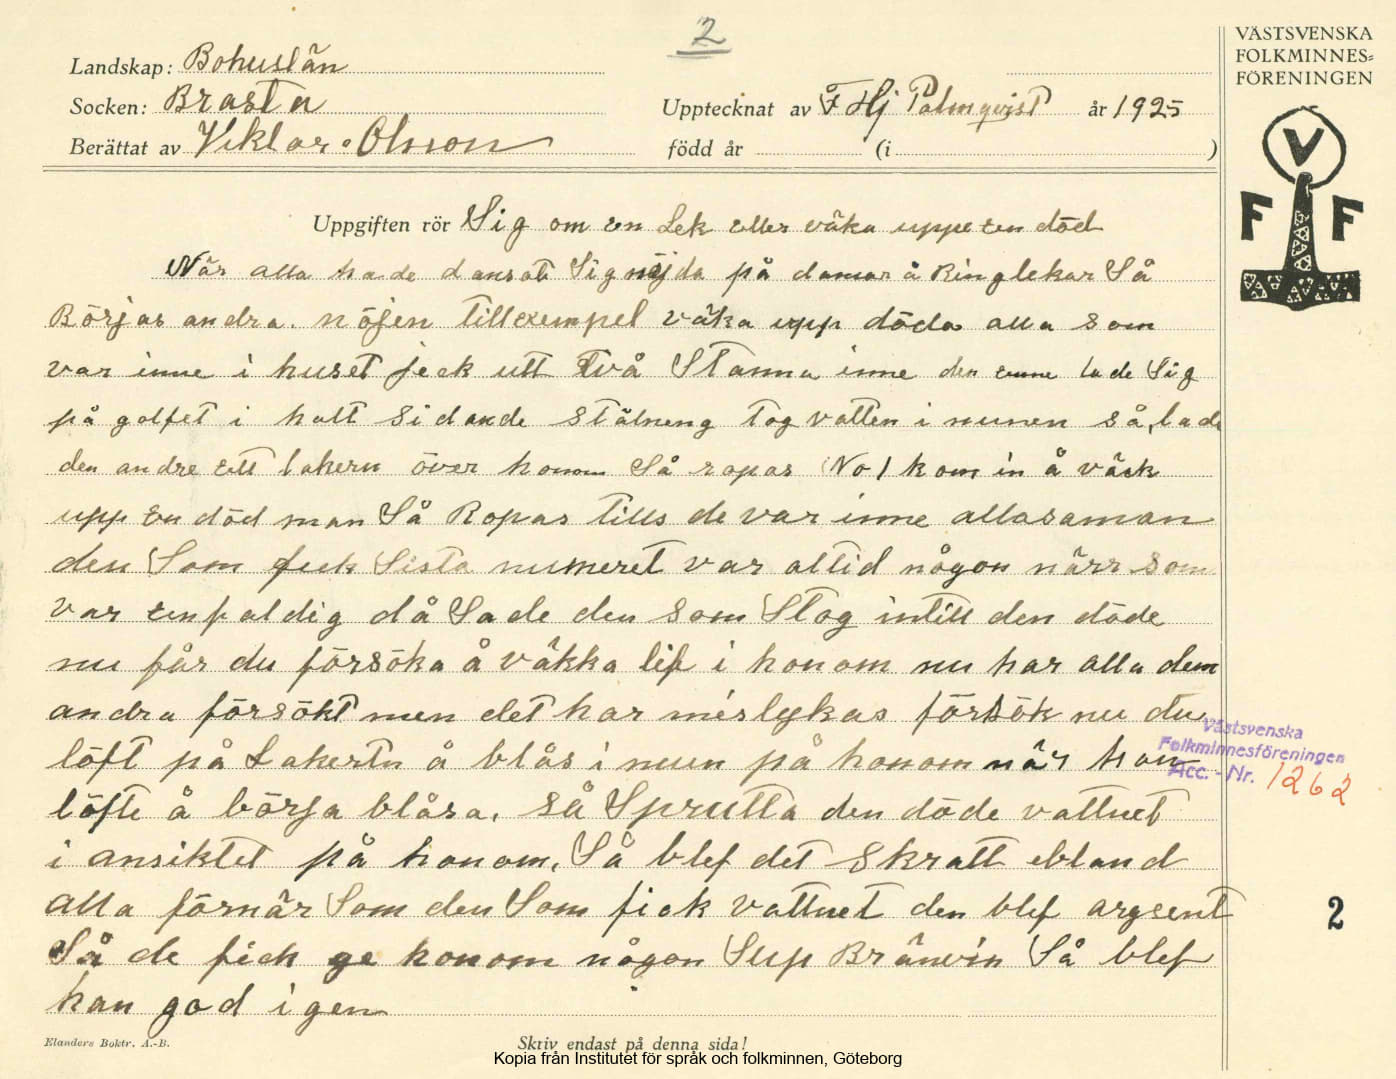 2
Landskap: Bohuslän
Socken: Brasta
Berättat av Viktor Olsson
Upptecknat av F Hj Palmqvist år 1925
född år (i )
VÄSTSVENSKA
FOLKMINNES=
FÖRENINGEN
V
F F
Uppgiften rör Sig om en Lek eller väka uppe en död
När alla hade dansat Sig nöjda på dansar å Ringlekar Så
Börjas andra. nöjen till exempel väka upp döda alla som
var inne i huset jeck utt två Stanna inne den enne lade Sig
på golfet i halt sidande stälneng tog vatten i munen så lade
den andre ett lakern över honom Så ropas No 1 kom in å väck
upp en död man Så Ropas tills de var inne allasaman
den Som fick Sista numeret var altid någon närr som
var enfaldig då Sade den som Stog intill den döde
nu får du försöka å väkka lif i honom nu har alla dem
andra försökt men det har mislykas försök nu du
löft på Lakertn å blås i mun på honom när han
löfte å börja blåsa, så Sprutta den döde vattnet
i ansiktet på honom, Så blef det skratt ebland
alla förnär Som den Som fick vattnet den blef argsent
Så de fick ge honom någon Sup Bränvin Så blef
han god igen
Västsvenska
Folkminnesföreningen
Acc. - Nr. 1262
2
Elanders Boktr. A.-B.
Skriv endast på denna sida!
Kopia från Institutet för språk och folkminnen, Göteborg